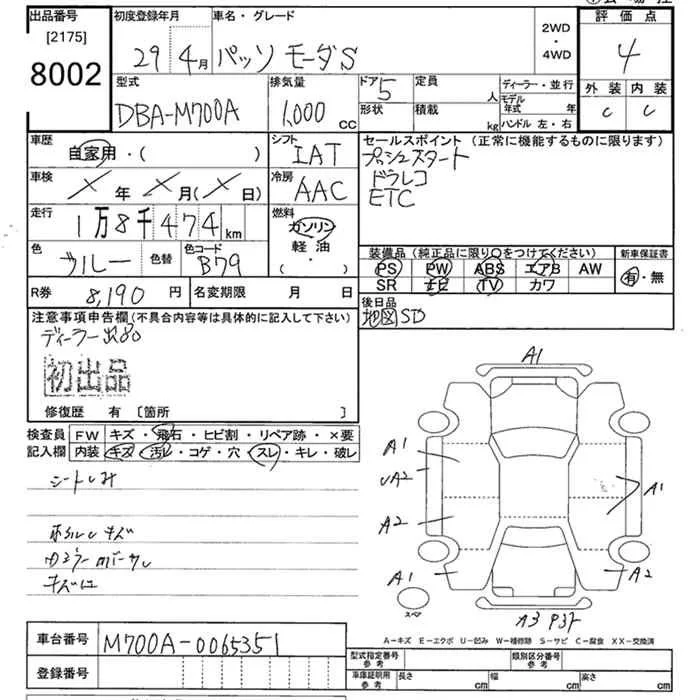 出品番号
[2175]
8002
初度登録年月
29年4月
車名・グレード
パッソ モーダS
2WD
・
4WD
評価点
4
外装 内装
C C
型式
DBA-M700A
排気量
1,000 CC
ドア 5
形状
定員 人
積載 kg
ディーラー・並行
モデル年式 年
ハンドル 左・右
車歴
自家用・( )
シフト
IAT
セールスポイント (正常に機能するものに限ります)
プッシュスタート
ドラレコ
ETC
車検
X年X月(X日)
冷房
AAC
走行
1万8千474 km
燃料
ガソリン
軽・油
( ・ )
色
ブルー
色替
色コード
B79
装備品 (純正品に限り〇をつけてください)
PS PW ABS エアB AW
SR ナビ TV カワ
新車保証書
有・無
R券 8,190 円
名変期限 月 日
後日品
地図SD
注意事項申告欄(不具合内容等は具体的に記入して下さい)
ディーラー
初出品
修復歴 有 [箇所 ]
検査員記入欄
FW キズ・飛石・ヒビ割・リペア跡・×要
内装 キズ・汚レ・コゲ・穴・スレ・キレ・破レ
シートしみ
キズ
A1
A1
UA2
A2
A1
A1
A2
スペア
A3 P3
A-キズ E-エクボ U-凹み W-補修跡 S-サビ C-腐食 XX-交換済
車台番号
M700A-0065351
登録番号
型式指定番号
参考
類別区分番号
参考
車庫証明用
参考
長さ cm
幅 cm
高さ cm